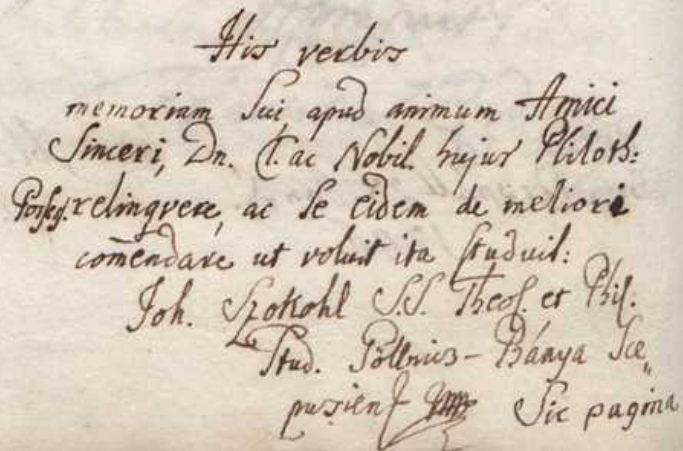 His verbis
memoriam Sui apud animum Amici
Sinceri, Dn. C. ac Nobil. hujus Philoth:
Possess. relinqvere, ac se eidem de meliori
com̄endare ut voluit ita studuit:
Joh. Szokohl S.S. Theol. et Phil.
Stud. Pöllnus-Bánya Sce„
pusiens Sic pagina